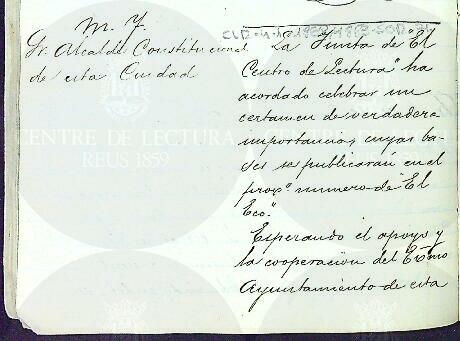 M. Y.
Sr. Alcalde Constitucional
de esta Ciudad
La Junta de "El
Centro de Lectura" ha
acordado celebrar un
certamen de verdadera
importancia, cuyas ba
ses se publicarán en el
proxº. numero de "El
Eco".
Esperando el apoyo y
la cooperación del Excmo
Ayuntamiento de esta
CENTRE DE LECTURA
REUS 1859